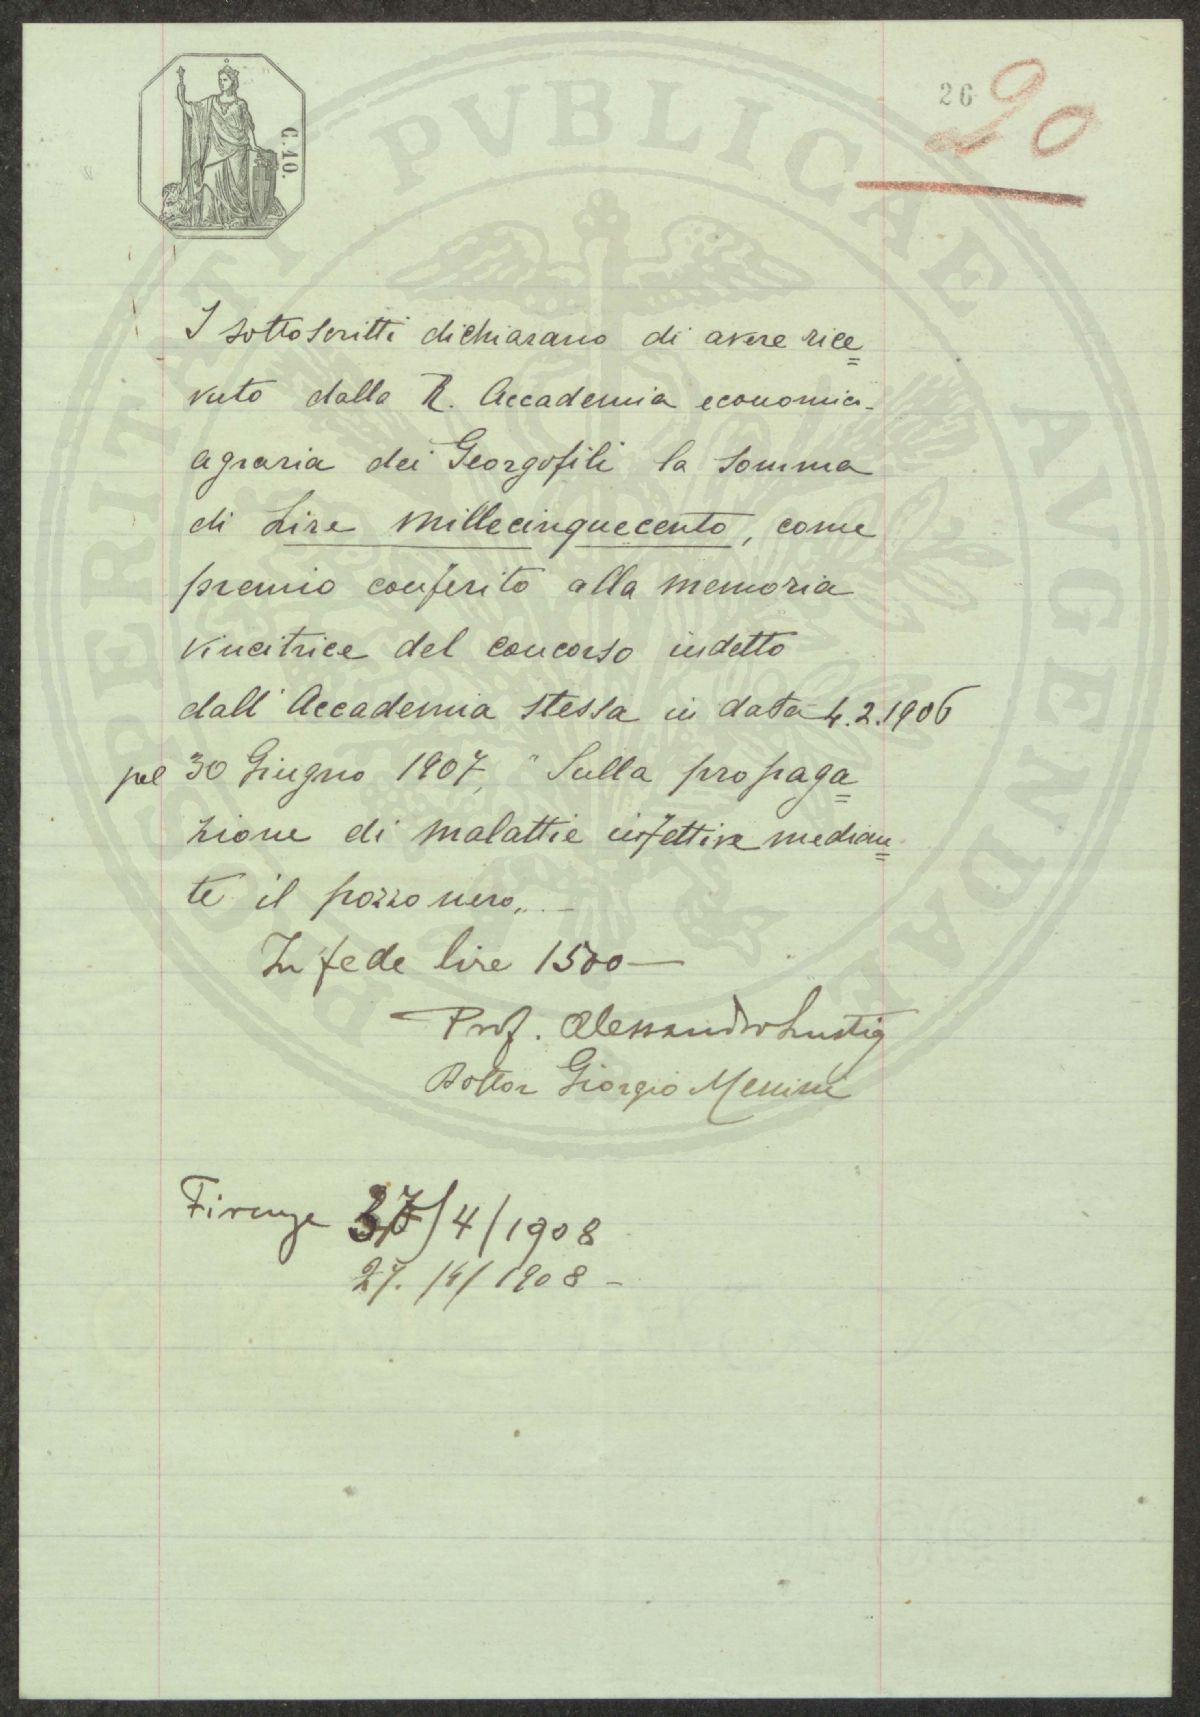 PROSPERITATI PVBLICAE AVGENDAE
C. 10.
26
20
I sottoscritti dichiarano di avere rice=
vuto dalla R. Accademia economica-
agraria dei Georgofili la somma
di Lire Millecinquecento, come
premio conferito alla memoria
vincitrice del concorso indetto
dall'Accademia stessa in data 4.2.1906
pel 30 Giugno 1907, "Sulla propaga=
zione di malattie infettive median=
te il pozzo nero„. —
In fede lire 1500 —
Prof. Alessandro Lustig
Dottor Giorgio Menini
Firenze 37/4/1908
27./4/1908 –